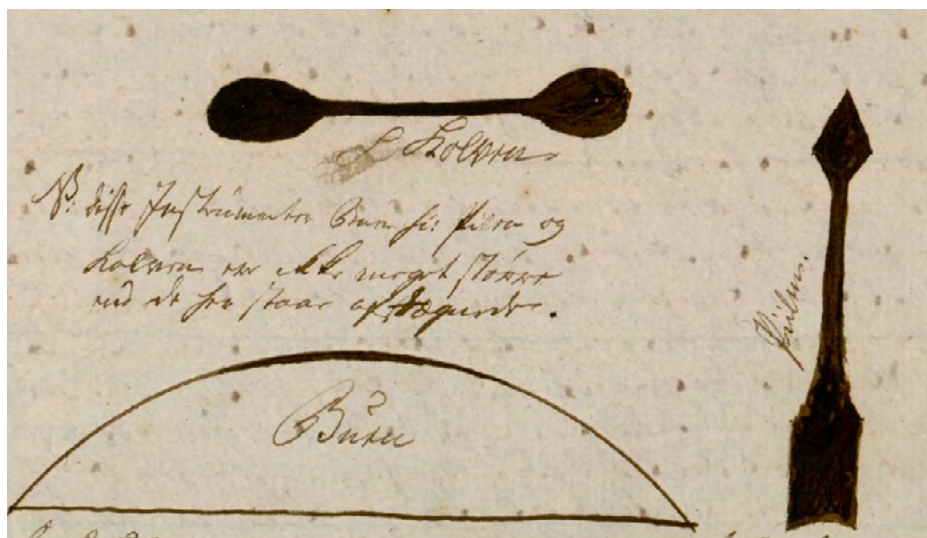 Kolven
NB: disse Instrumenter Buen hi: Pilen og
Kolven er ikke meget större
end de her staae aftegnede.
Piilen.
Buen